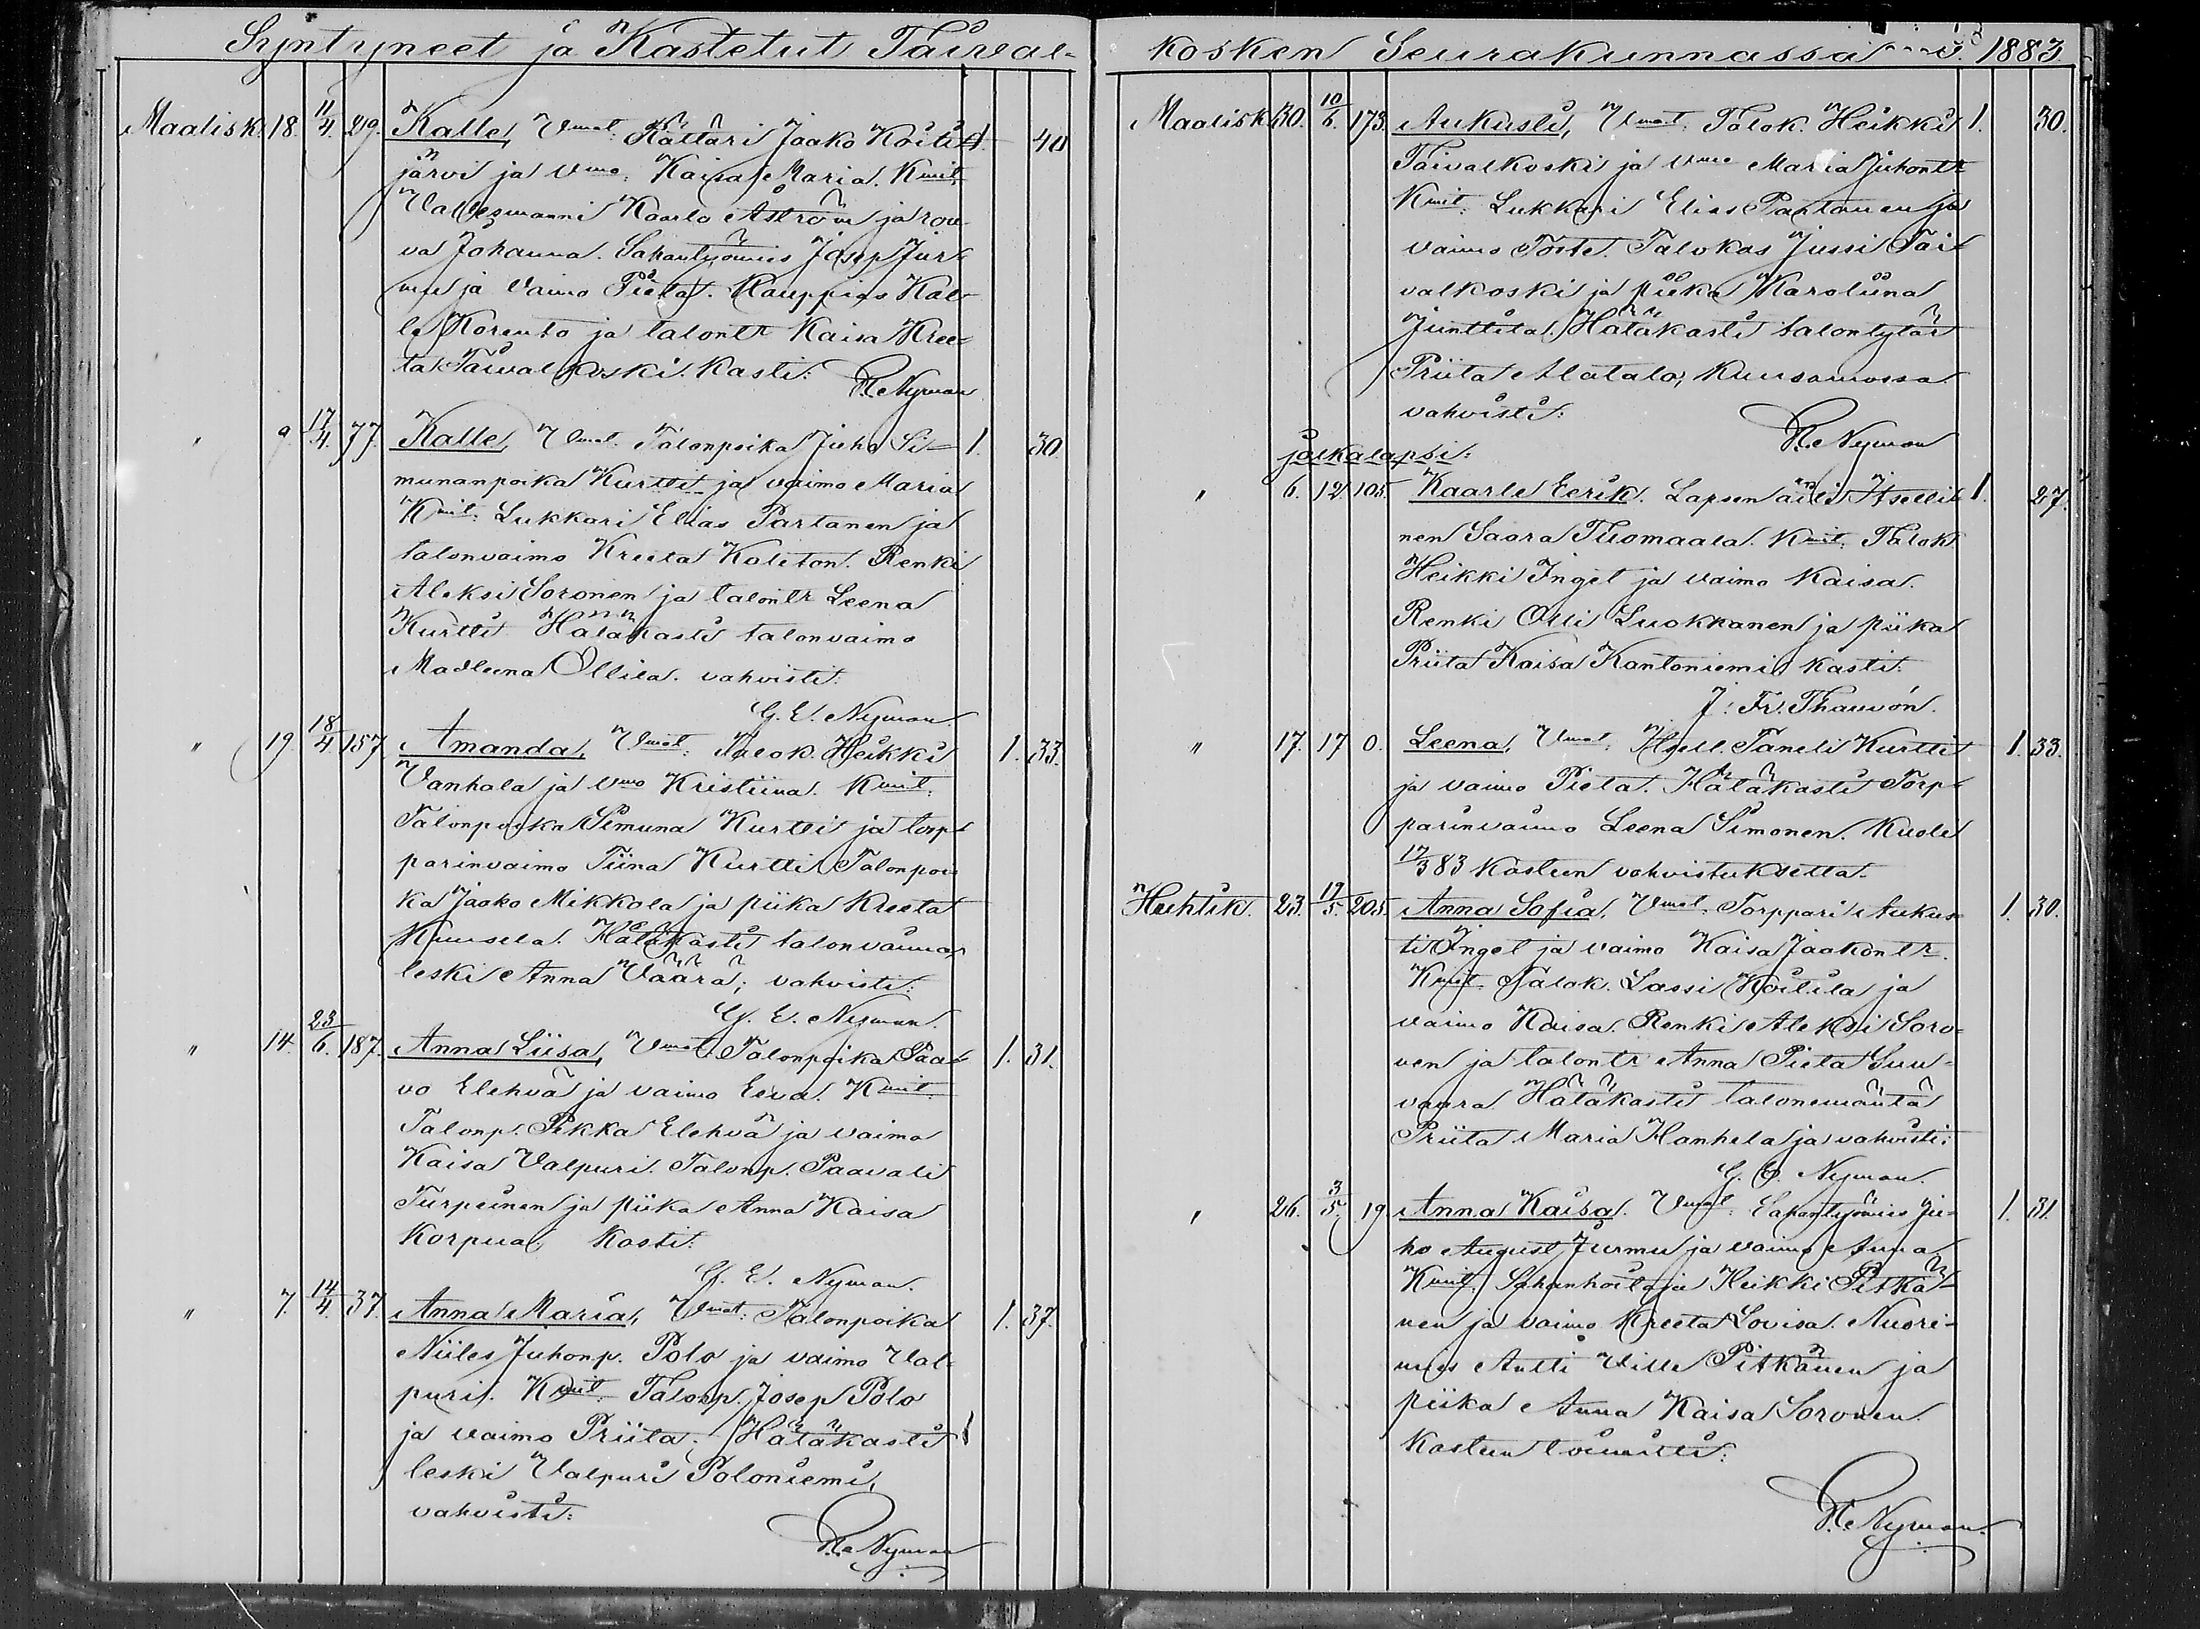 Syntyneet ja Kastetut Taival-
Maalisk. 18. 11/4. 29. Kalle, Vmat. Rättäri Jaako Koiti- 1. 40
järvi ja Vmo. Kaisa Maria. Kmit.
Vallesmanni Kaarlo Åström ja rou-
va Johanna. Sahantyömies Josep Jur-
mu ja vaimo Pieta. Kauppias Kal-
le Korento ja talontr Kaisa Kree-
ta Taivalkoski. Kasti:
Nyman
" 9. 17/4. 77. Kalle, Vmat. Talonpoika Juho Si- 1. 30.
munanpoika Kurtti ja vaimo Maria
Kmit. Lukkari Elias Partanen ja
talonvaimo Kreeta Koleton. Renki
Aleksi Soronen ja talontr Leena
Kurtti. Hätäkasti talonvaimo
Madleena Ollila. vahvisti:
G. E. Nyman
" 19. 18/4 157 Amanda, Vmat. Talok. Heikki 1. 33.
Vanhala ja Vmo Kristiina. Kmit.
Talonpoika Simuna Kurtti ja torp-
parinvaimo Tiina Kurtti. Talonpoi-
ka Jaako Mikkola ja piika Kreeta
Kuusela. Hätäkasti talonvaimo
leski Anna Väärä; vahvisti:
G. E. Nyman.
" 14. 23/6. 187. Anna Liisa, Vmat. Talonpoika Paa- 1. 31.
vo Elehvä ja vaimo Eeva. Kmit.
Talonp. Pekka Elehvä ja vaimo
Kaisa Valpuri. Talonp. Paavali
Turpeinen ja piika Anna Kaisa
Korpua. Kasti:
G. E. Nyman.
" 7. 14/4. 37. Anna Maria, Vmat. Talonpoika 1. 37.
Niiles Juhonp. Polo ja vaimo Val-
puri. Kmit. Talonp. Josep Polo
ja vaimo Priita. Hätäkasti
leski Valpuri Poloniemi,
vahvisti:
Nyman
kosken Seurakunnassa v. 1883.
Maalisk. 30. 10/6. 173. Aukusti, Vmat. Talok. Heikki 1. 30.
Taivalkoski ja Vmo Maria Juhontr
Kmit. Lukkari Elias Partanen ja
vaimo Torte. Talokas Jussi Tai-
valkoski ja piika Karoliina
Junttila. Hätäkasti talontytär
Priita Alatalo, Kuusamossa.
vahvisti:
Nyman
jälkalapsi:
" 6. 12 105. Kaarle Eerik. Lapsen äiti Itselli- 1. 27.
nen Saara Tuomaala. Kmit. Talok
Heikki Inget ja vaimo Kaisa.
Renki Olli Luokkanen ja piika
Priita Kaisa Kantoniemi. Kasti:
J: Fr. Thauvón.
" 17. 17 0. Leena, Vmat. Itsell. Taneli Kurtti 1. 33.
ja vaimo Pieta. Hätäkasti Torp-
parinvaimo Leena Simonen. Kuoli
17/3 83 Kasteen vahvistuksetta.
Huhtik. 23. 17/5. 205. Anna Sofia. Vmat. Torppari Aukus- 1. 30.
ti Inget ja vaimo Kaisa Jaakontr.
Kmit. Talok. Lassi Koitila ja
vaimo Kaisa. Renki Aleksi Soro-
nen ja talontr Anna Pieta Suu-
vaara. Hätäkasti talonemäntä
Priita Maria Hanhela ja vahvisti:
G. E. Nyman.
" 26. 3/5. 19. Anna Kaisa. Vmat. Sahantyömies Ju- 1. 31.
ho August Jurmu ja vaimo Anna
Kmit. Sahanhoitaja Heikki Pitkä-
nen ja vaimo Kreeta Lovisa. Nuori-
mies Antti Ville Pitkänen ja
piika Anna Kaisa Soronen.
Kasteen toimitti:
Nyman.